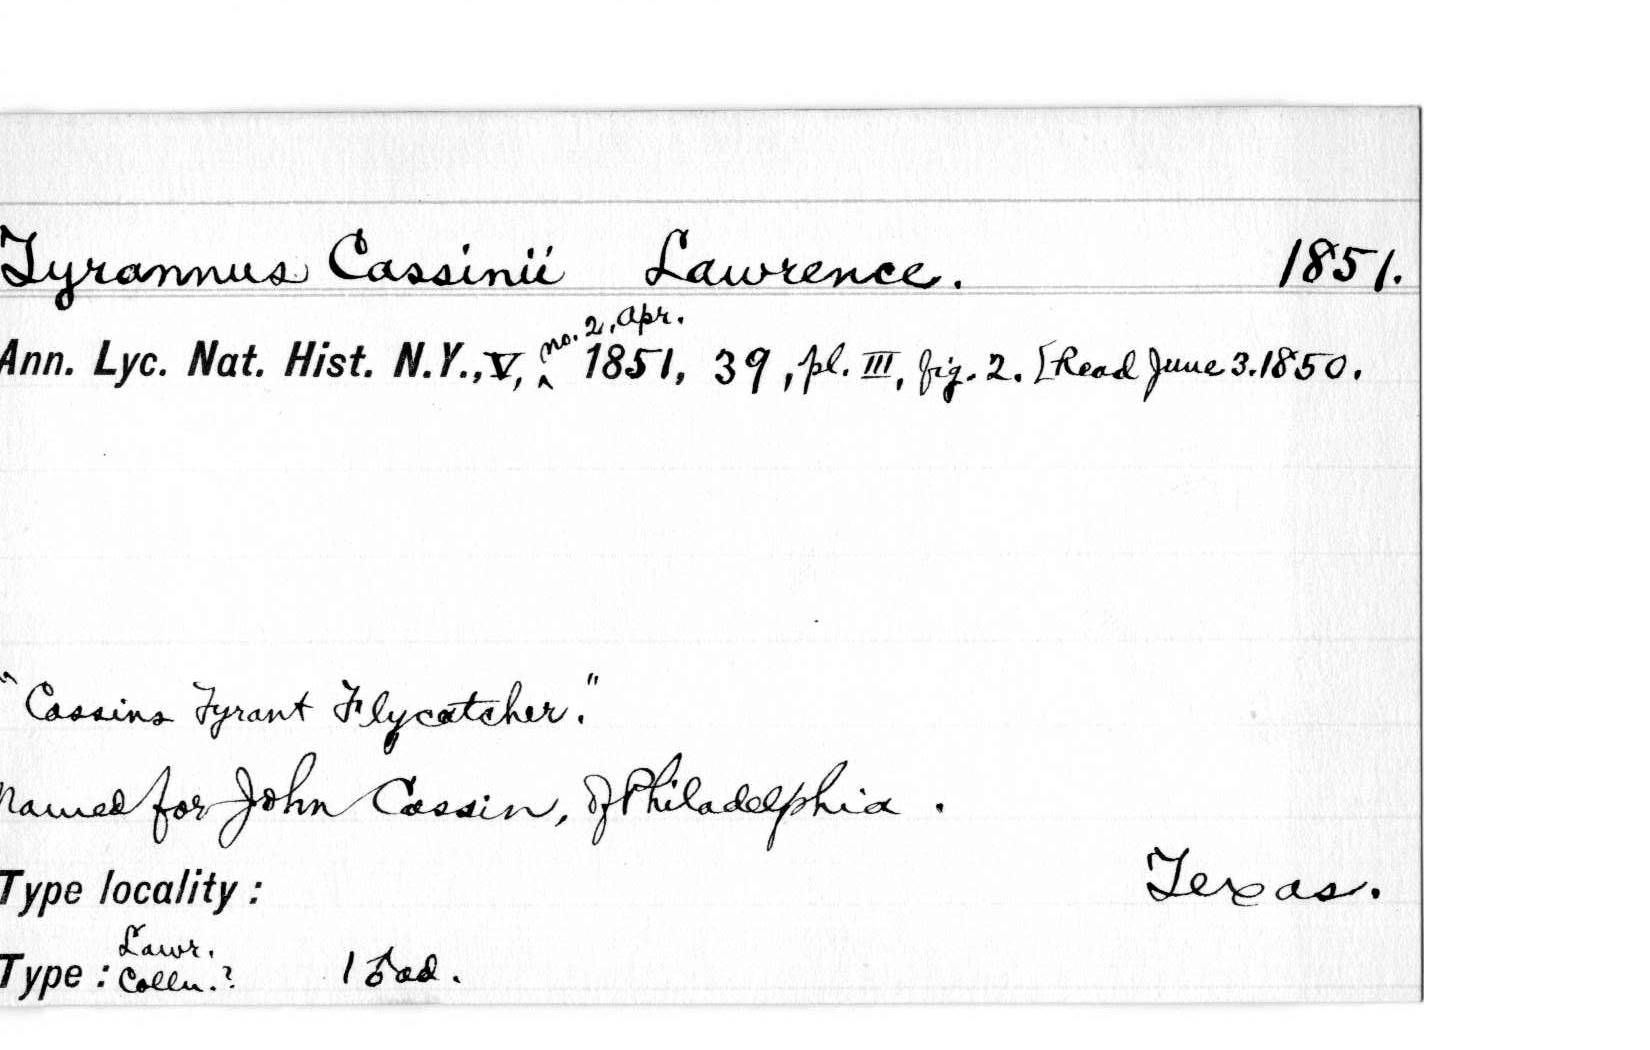 Tyrannus Cassinii Lawrence. 1851.
no. 2, Apr.
Ann. Lyc. Nat. Hist. N.Y., V, ‸ 1851, 39, pl. III, fig. 2. [Read June 3. 1850.
"Cassins Tyrant Flycatcher."
Named for John Cassin, of Philadelphia.
Type locality: Texas.
Lawr.
Type: Colln.? 1 ♂ ad.